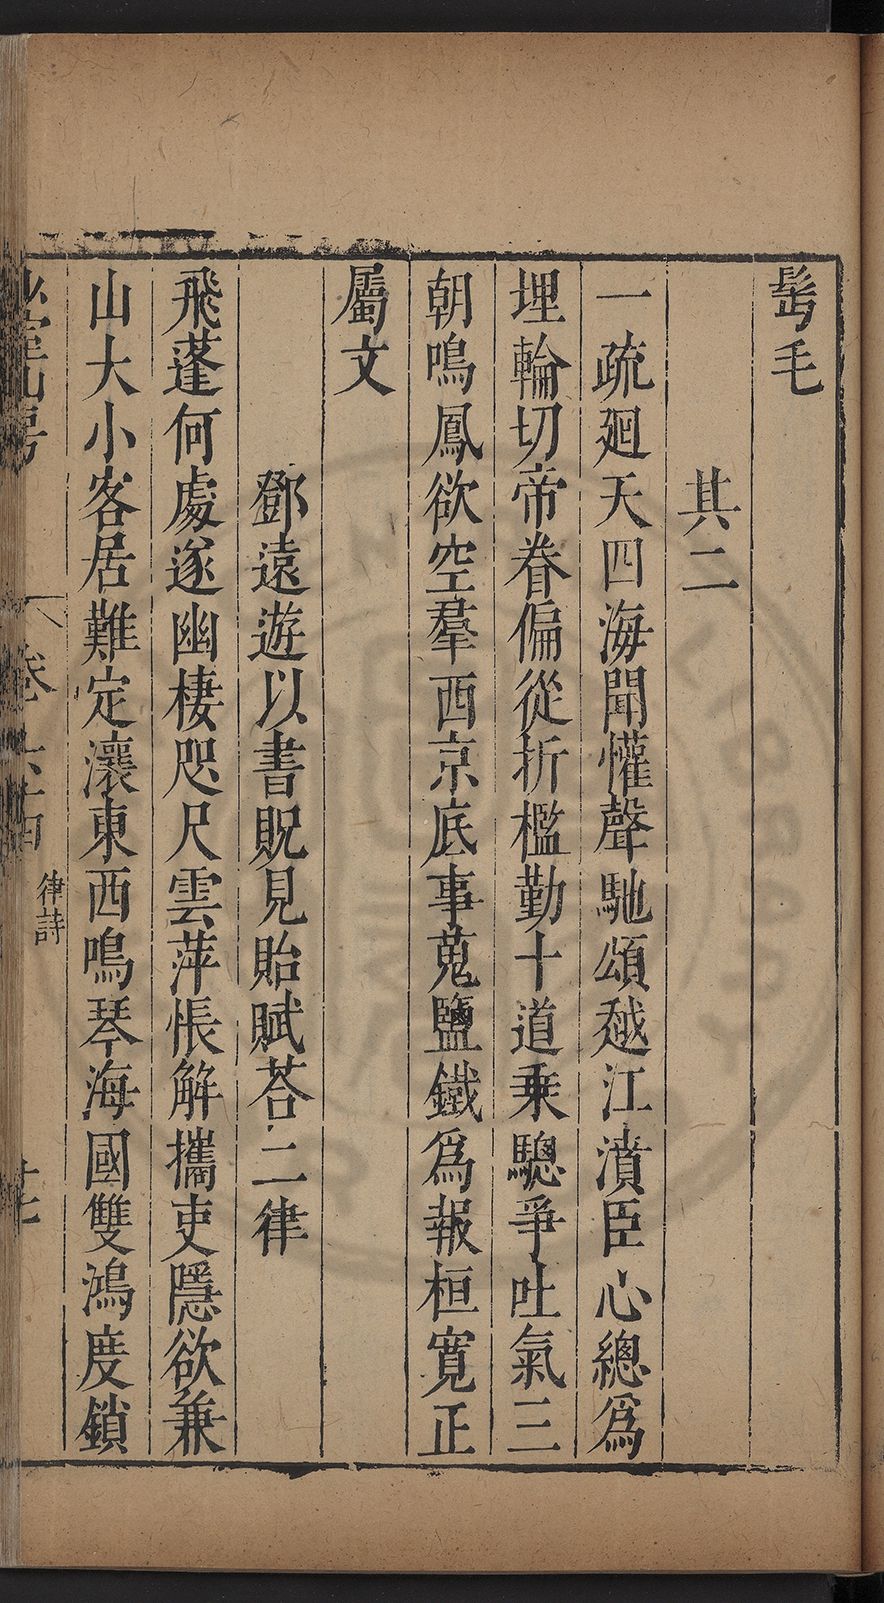 髩毛
其二
一疏廻天四海聞懽聲馳頌越江濆臣心總為
埋輪切帝眷偏從折檻勤十道乗驄爭吐氣三
朝鳴鳳欲空羣西京底事蒐鹽鐵為報桓寬正
屬文
鄧遠遊以書貺見貽賦荅二律
飛蓬何處遂幽棲咫尺雲萍悵解攜吏隱欲兼
山大小客居難定瀼東西鳴琴海國雙鴻度鎖
山房
卷
律詩